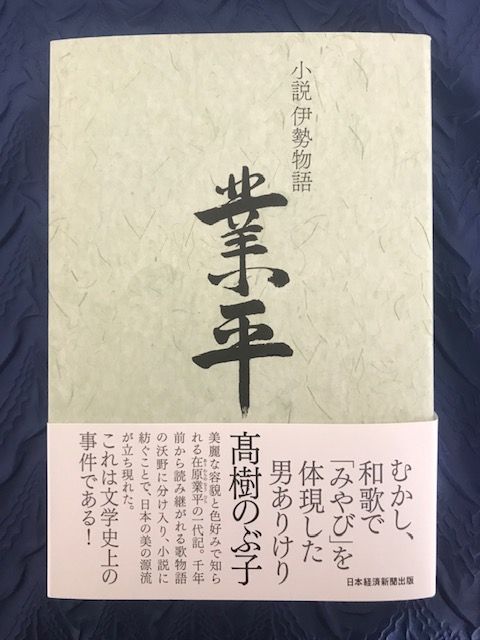 小説 伊勢物語
業平
むかし、
和歌で
「みやび」を
体現した
男ありけり
髙樹のぶ子
美麗な容貌と色好みで知ら
れる在原業平の一代記。千年
前から読み継がれる歌物語
の沃野に分け入り、小説に
紡ぐことで、日本の美の源流
が立ち現れた。
これは文学史上の
事件である!
日本経済新聞出版